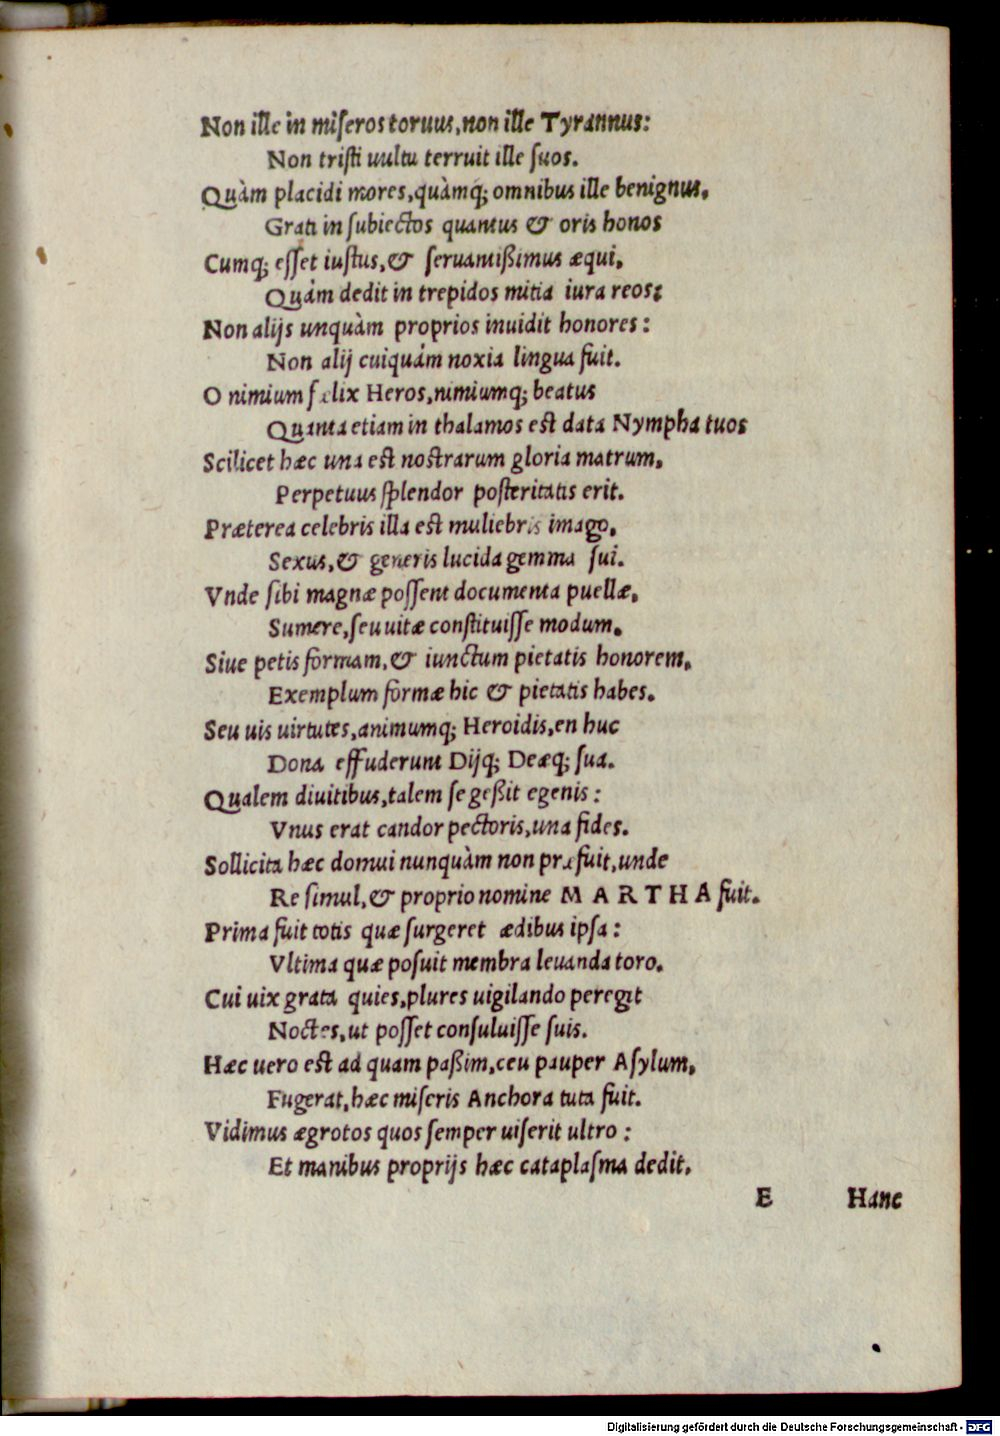 Non ille in miſeros toruus, non ille Tyrannus:
Non triſti uultu terruit ille ſuos.
Quàm placidi mores, quàmq; omnibus ille benignus,
Grati in ſubiectos quantus & oris honos
Cumq; eſſet iuſtus, & ſeruantißimus æqui,
Quàm dedit in trepidos mitia iura reos:
Non alijs unquàm proprios inuidit honores:
Non alij cuiquàm noxia lingua fuit.
O nimium fælix Heros, nimiumq; beatus
Quanta etiam in thalamos est data Nympha tuos
Scilicet hæc una est nostrarum gloria matrum,
Perpetuus ſplendor poſteritatis erit.
Præterea celebris illa est muliebris imago,
Sexus, & generis lucida gemma ſui.
Vnde ſibi magnæ poſſent documenta puellæ,
Sumere, ſeu uitæ conſtituiſſe modum.
Siue petis formam, & iunctum pietatis honorem,
Exemplum formæ hic & pietatis habes.
Seu uis uirtutes, animumq; Heroidis, en huc
Dona effuderunt Dijq; Deæq; ſua.
Qualem diuitibus, talem ſe geßit egenis:
Vnus erat candor pectoris, una fides.
Sollicita hæc domui nunquàm non præfuit, unde
Re ſimul, & proprio nomine MARTHA fuit.
Prima fuit totis quæ ſurgeret ædibus ipſa:
Vltima quæ poſuit membra leuanda toro.
Cui uix grata quies, plures uigilando peregit
Noctes, ut poſſet conſuluiſſe ſuis.
Hæc uero est ad quam paßim, ceu pauper Aſylum,
Fugerat, hæc miſeris Anchora tuta fuit.
Vidimus ægrotos quos ſemper uiſerit ultro:
Et manibus proprijs hæc cataplaſma dedit.
E Hanc
Digitalisierung gefördert durch die Deutsche Forschungsgemeinschaft - DFG